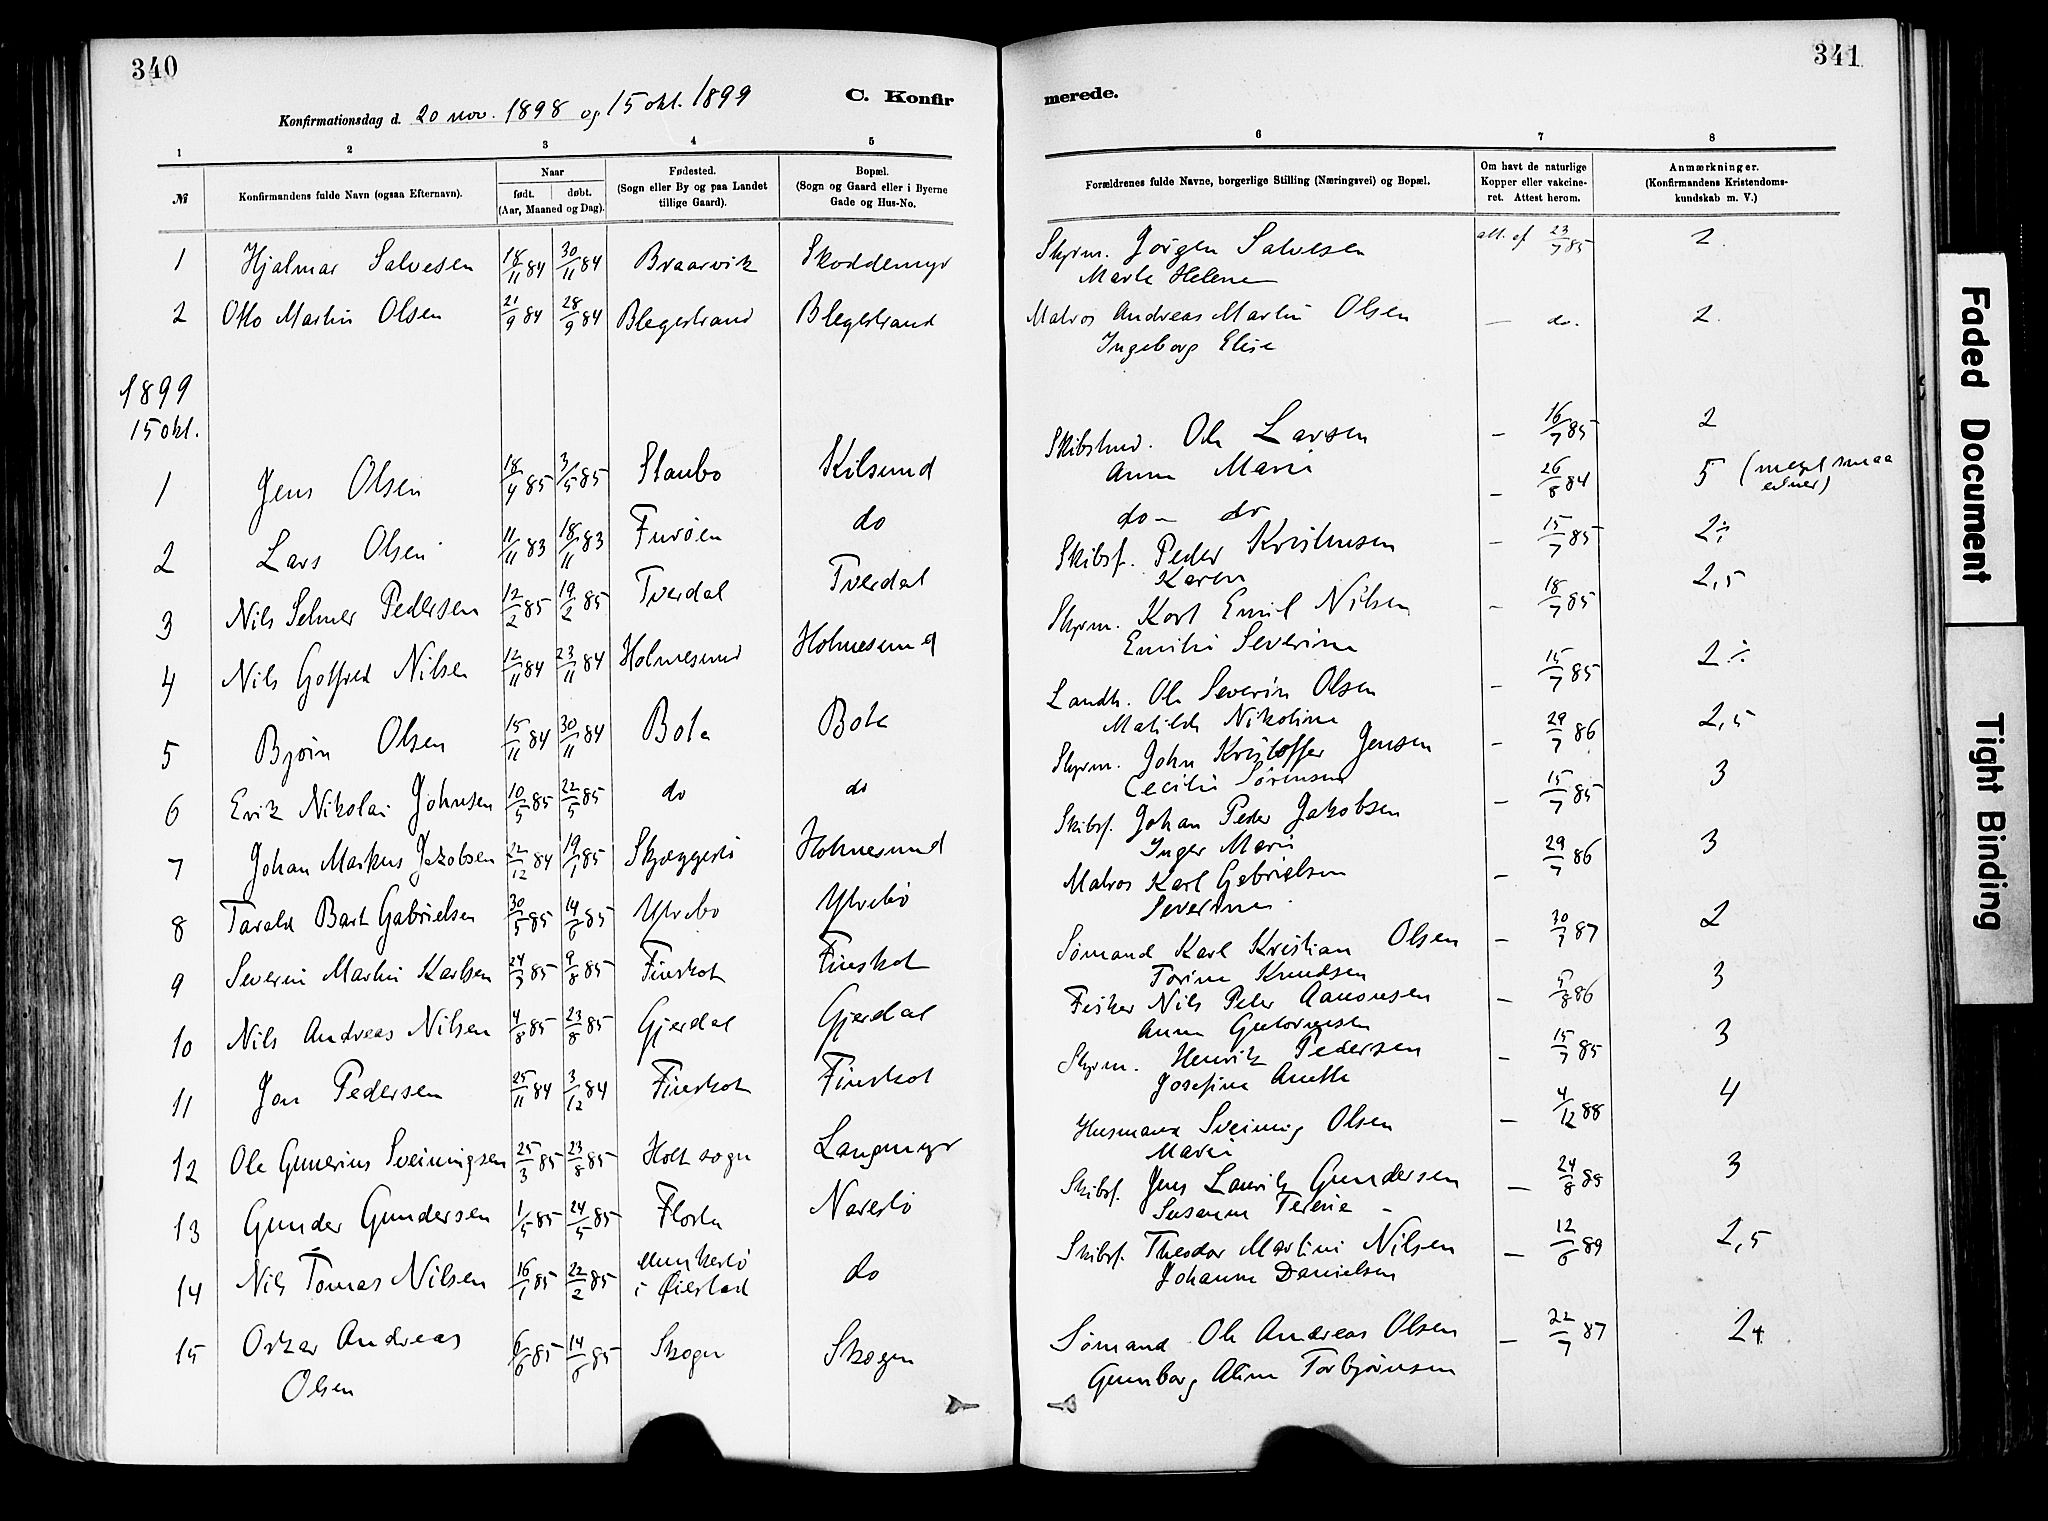 340
341
C. Konfir
merede.
Konfirmationsdag d. 20 nov. 1898 og 15 okt. 1899
1 2 3 4 5 6 7 8
№ Konfirmandens fulde Navn (ogsaa Efternavn). Naar født. døbt. (Aar, Maaned og Dag). Fødested. (Sogn eller By og paa Landet tillige Gaard). Bopæl. (Sogn og Gaard eller i Byerne Gade og Hus-No. Forældrenes fulde Navne, borgerlige Stilling (Næringsvei) og Bopæl. Om havt de naturlige Kopper eller vakcineret. Attest herom. Anmærkninger. (Konfirmandens Kristendomskundskab m. V.)
1 Hjalmar Salvesen 18/11 84 30/11 84 Braarvik Skoddemyr Skprm. Jørgen Salvesen att. af 23/7 85 2.
Marte Helene
2 Otto Martin Olsen 21/9 84 28/9 84 Blegestrand Blegestrand Matros Andreas Martin Olsen — do. 2.
Ingeborg Elise
1899
15 okt.
1 Jens Olsen 18/4 85 3/5 85 Staubo Kilsund Skibstmd. Ole Larsen – 16/7 85 2
Anne Marie
2 Lars Olsen 11/11 83 18/11 83 Furøen do do – do – 26/8 84 5 (meget smaa evner)
3 Nils Selmer Pedersen 12/2 85 19/2 85 Tverdal Tverdal Skibsf. Peder Kristensen – 15/7 85 2÷
Karen
4 Nils Gotfred Nilsen 12/11 84 23/11 84 Holmesund Holmesund Skprm. Karl Emil Nilsen – 18/7 85 2,5
Emilie Severine
5 Bjørn Olsen 15/11 84 30/11 84 Bota Bota Landh. Ole Severin Olsen – 15/7 85 2÷
Matilde Nikoline
6 Erik Nikolai Johnsen 10/5 85 22/5 85 do do Skprm. John Kristoffer Jensen – 29/7 86 2,5
Cecilie Sørensen
7 Johan Markus Jakobsen 22/12 84 19/1 85 Skjæggestø Holmesund Skibsf. Johan Peder Jakobsen – 15/7 85 3
Inger Marie
8 Tarald Bart Gabrielsen 30/5 85 14/6 85 Ytrebø Ytrebø Matros Karl Gabrielsen – 29/7 86 3
Severine
9 Severin Martin Karlsen 24/3 85 9/8 85 Finskot Finskot Sømand Karl Kristian Olsen – 30/7 87 2
Torine Knudsen
10 Nils Andreas Nilsen 4/8 85 23/8 85 Gjerdal Gjerdal Fisker Nils Peter Aanonsen – 5/8 86 3
Anne Guttormsen
11 Jon Pedersen 25/11 84 3/12 84 Finskot Finskot Skprm. Henrik Pedersen – 15/7 85 3
Josefine Anette
12 Ole Gunerius Sveinungsen 25/3 85 23/8 85 Holt sogn Langmyr Husmand Sveinung Olsen – 4/12 88 4
Marie
13 Gunder Gundersen 1/5 85 24/5 85 Flosta Narestø Skibsf. Jens Lauritz Gundersen – 24/8 89 3
Susanne Terese
14 Nils Tomas Nilsen 16/1 85 22/2 85 i Øiestad do Skibsf. Theodor Martini Nilsen – 12/6 89 2,5
Johanne Danielsen
15 Oskar Andreas 6/6 85 14/6 85 Skogen Skogen Sømand Ole Andreas Olsen – 22/7 87 2+
Olsen Gunborg Aline Torbjørnsen
Faded Document
Tight Binding